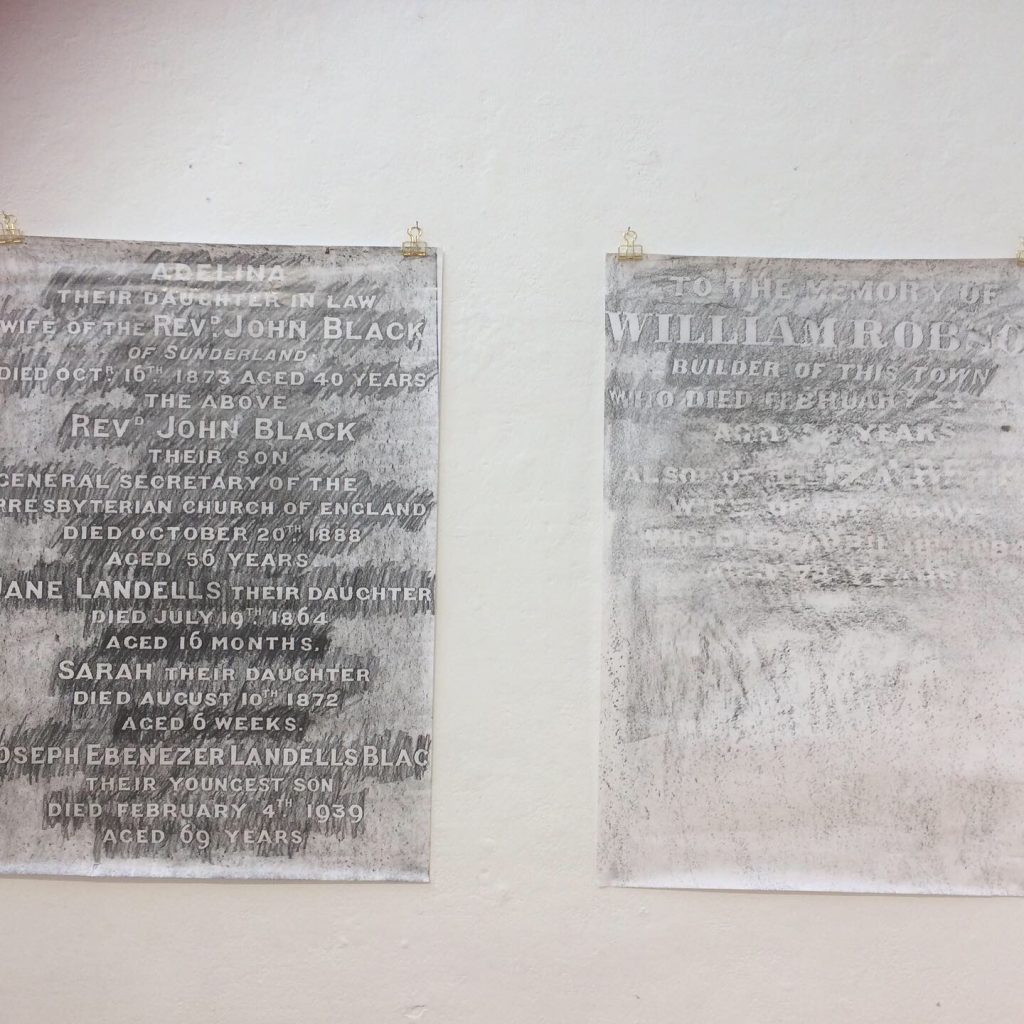 ADELINA
THEIR DAUGHTER IN LAW
WIFE OF THE REVD JOHN BLACK
OF SUNDERLAND.
DIED OCTR 16TH 1873 AGED 40 YEARS
THE ABOVE
REVD JOHN BLACK
THEIR SON
GENERAL SECRETARY OF THE
PRESBYTERIAN CHURCH OF ENGLAND
DIED OCTOBER 20TH 1888
AGED 56 YEARS
JANE LANDELLS THEIR DAUGHTER
DIED JULY 19TH 1864
AGED 16 MONTHS.
SARAH THEIR DAUGHTER
DIED AUGUST 10TH 1872
AGED 6 WEEKS.
JOSEPH EBENEZER LANDELLS BLAC
THEIR YOUNGEST SON
DIED FEBRUARY 4TH 1939
AGED 69 YEARS
TO THE MEMORY OF
WILLIAM ROBSO
BUILDER OF THIS TOWN
WHO DIED FEBRUARY
AGED YEARS
ALSO OF ELIZABETH
WIFE OF THE ABOVE
WHO DIED APRIL
AGED YEARS